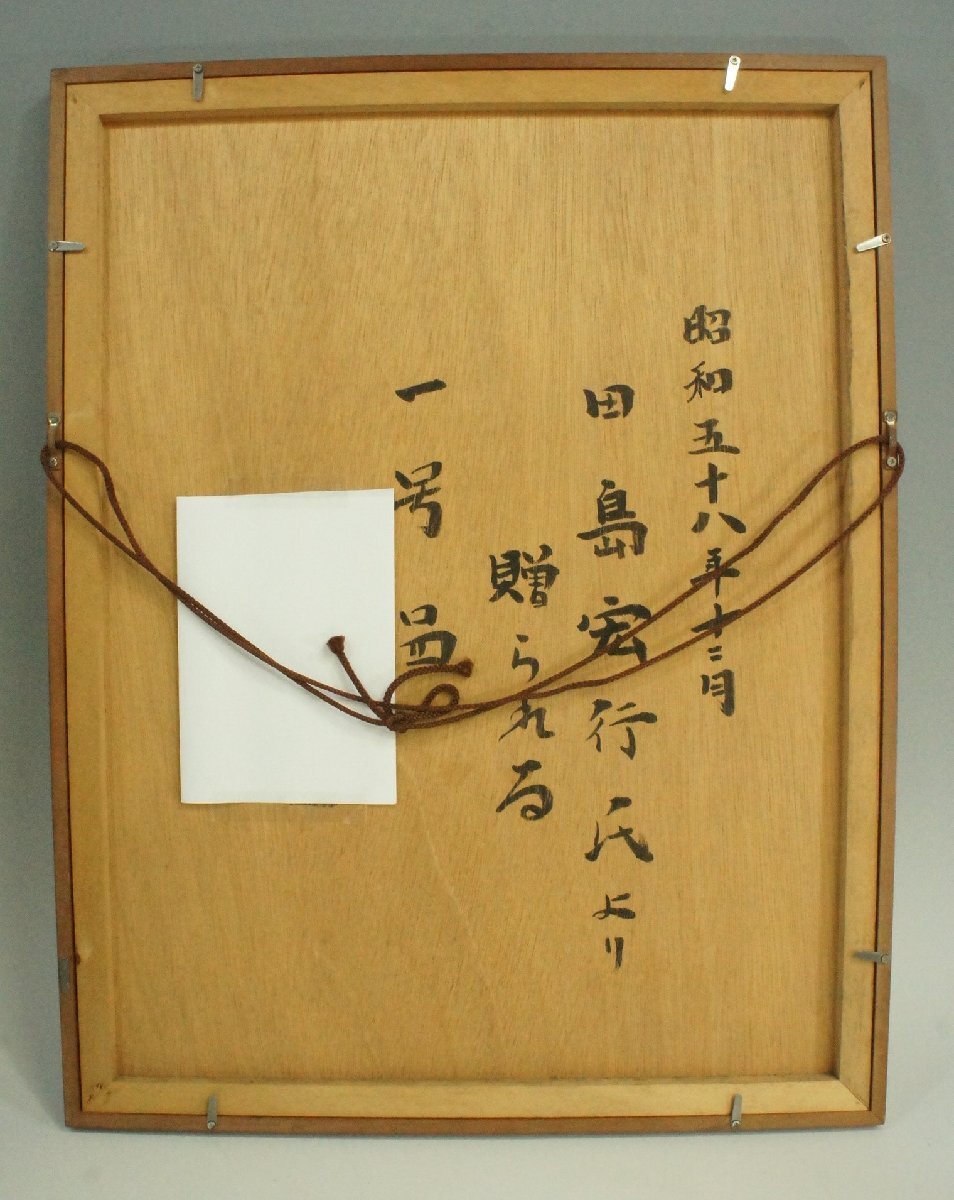 昭和五十八年十二月
田島宏行氏より
贈られる
一号